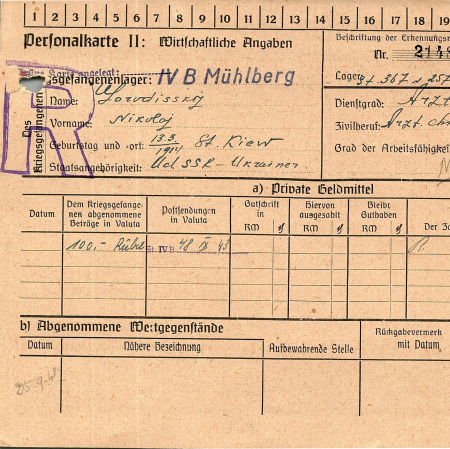 1 2 3 4 5 6 7 8 9 10 11 12 13 14 15 16 17 18 19
Personalkarte II: Wirtschaftliche Angaben
Beschriftung der Erkennungsm
Nr. 2148
Karte angelegt:
gefangenenlager: IV B Mühlberg
Lager: St 367 N 257
Des Kriegsgefangenen
R
Name: Gorodisskij
Vorname: Nikolaj
Geburtstag und -ort: 13.3. 1914 St. Kiew
Staatsangehörigkeit: UdSSR - Ukrainer
Dienstgrad: Arzt
Zivilberuf: Arzt. ch
Grad der Arbeitsfähigkeit
a) Private Geldmittel
Datum
Dem Kriegsgefangenen abgenommene Beträge in Valuta
Postsendungen in Valuta
Gutschrift in RM
Hiervon ausgezahlt RM
Bleibt Guthaben RM
Der Za
100,- Rubel St IV B 48 IX 43 R.
b) Abgenommene Wertgegenstände
Datum
Nähere Bezeichnung
Aufbewahrende Stelle
Rückgabevermerk mit Datum